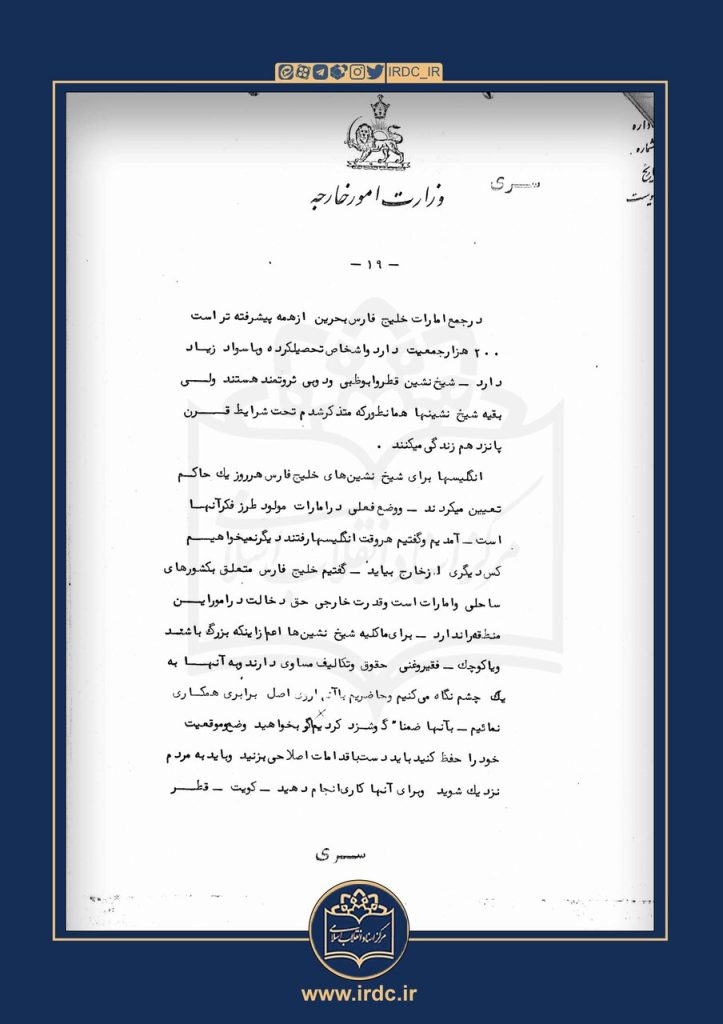 IRDC_IR
اداره
شماره
تاریخ
پیوست
سری
وزارت امور خارجه
- ۱۹ -
در جمع امارات خلیج فارس بحرین از همه پیشرفته تر است
۲۰۰ هزار جمعیت دارد و اشخاص تحصیلکرده و با سواد زیاد
دارد - شیخ نشین قطر و ابوظبی و دوبی ثروتمند هستند ولی
بقیه شیخ نشینها همانطور که متذکر شدم تحت شرایط قرن
پانزدهم زندگی میکنند .
انگلیسها برای شیخ نشین‌های خلیج فارس هر روز یک حاکم
تعیین میکردند - و وضع فعلی در امارات مولود طرز فکر آنها
است - آمدیم و گفتیم هر وقت انگلیسها رفتند دیگر نمیخواهیم
کس دیگری از خارج بیاید - گفتیم خلیج فارس متعلق بکشورهای
ساحلی و امارات است و قدرت خارجی حق دخالت در امور این
منطقه را ندارد - برای ما کلیه شیخ نشین ها اعم از اینکه بزرگ باشند
و یا کوچک - فقیر و غنی حقوق و تکالیف مساوی دارند و به آنها به
یک چشم نگاه می کنیم و حاضریم با آنها روی اصل برابری همکاری
نمائیم - بآنها ضمنا" گوشزد کردیم اگر بخواهید وضع و موقعیت
خود را حفظ کنید باید دست باقدامات اصلاحی بزنید و باید به مردم
نزدیک شوید و برای آنها کاری انجام دهید - کویت - قطر
سری
مرکز اسناد انقلاب اسلامی
www.irdc.ir